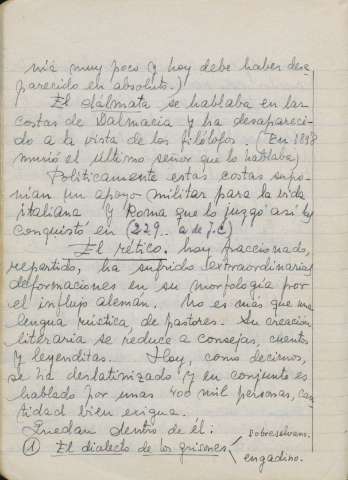 nía muy poco y hoy debe haber desa-
parecido en absoluto.)
El dálmata se hablaba en las
costas de Dalmacia y ha desapareci-
do a la vista de los filólofos. (En 1898
murió el último señor que lo hablaba)
Políticamente estas costas supo-
nían un apoyo militar para la vida
italiana y Roma que lo juzgó así las
conquistó en (229 .. a de J.C)
El rético. hoy fraccionado,
repartido, ha sufrido extraordinarias
deformaciones en su morfología por
el influjo alemán. No es más que una
lengua rústica, de pastores. Su creación
literaria se reduce a consejas, cuentos
y leyenditas. Hoy, como decimos,
se ha deslatinizado y en conjunto es
hablado por unas 400 mil personas, can-
tidad bien exigua.
Quedan dentro de él:
① El dialecto de los grisones
sobreselvano.
engadino.